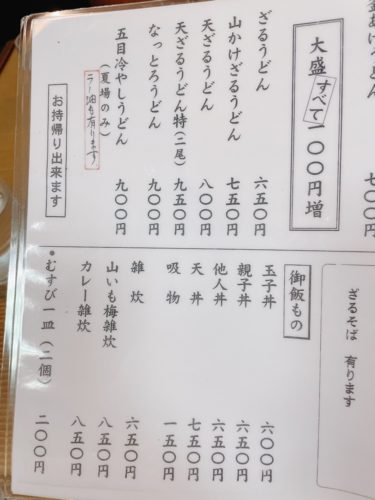 大盛すべて一〇〇円増
ざるうどん 六五〇円
山かけざるうどん 七五〇円
天ざるうどん 八〇〇円
天ざるうどん特(二尾) 九五〇円
なっとろうどん 九〇〇円
五目冷やしうどん 九〇〇円
(夏場のみ)
ラー油も有ります
お持帰り出来ます
ざるそば 有ります
御飯もの
玉子丼 六〇〇円
親子丼 六五〇円
他人丼 六五〇円
天丼 七五〇円
吸物 一五〇円
雑炊 六五〇円
山いも梅雑炊 八五〇円
カレー雑炊 八五〇円
・むすび一皿(二個) 二〇〇円